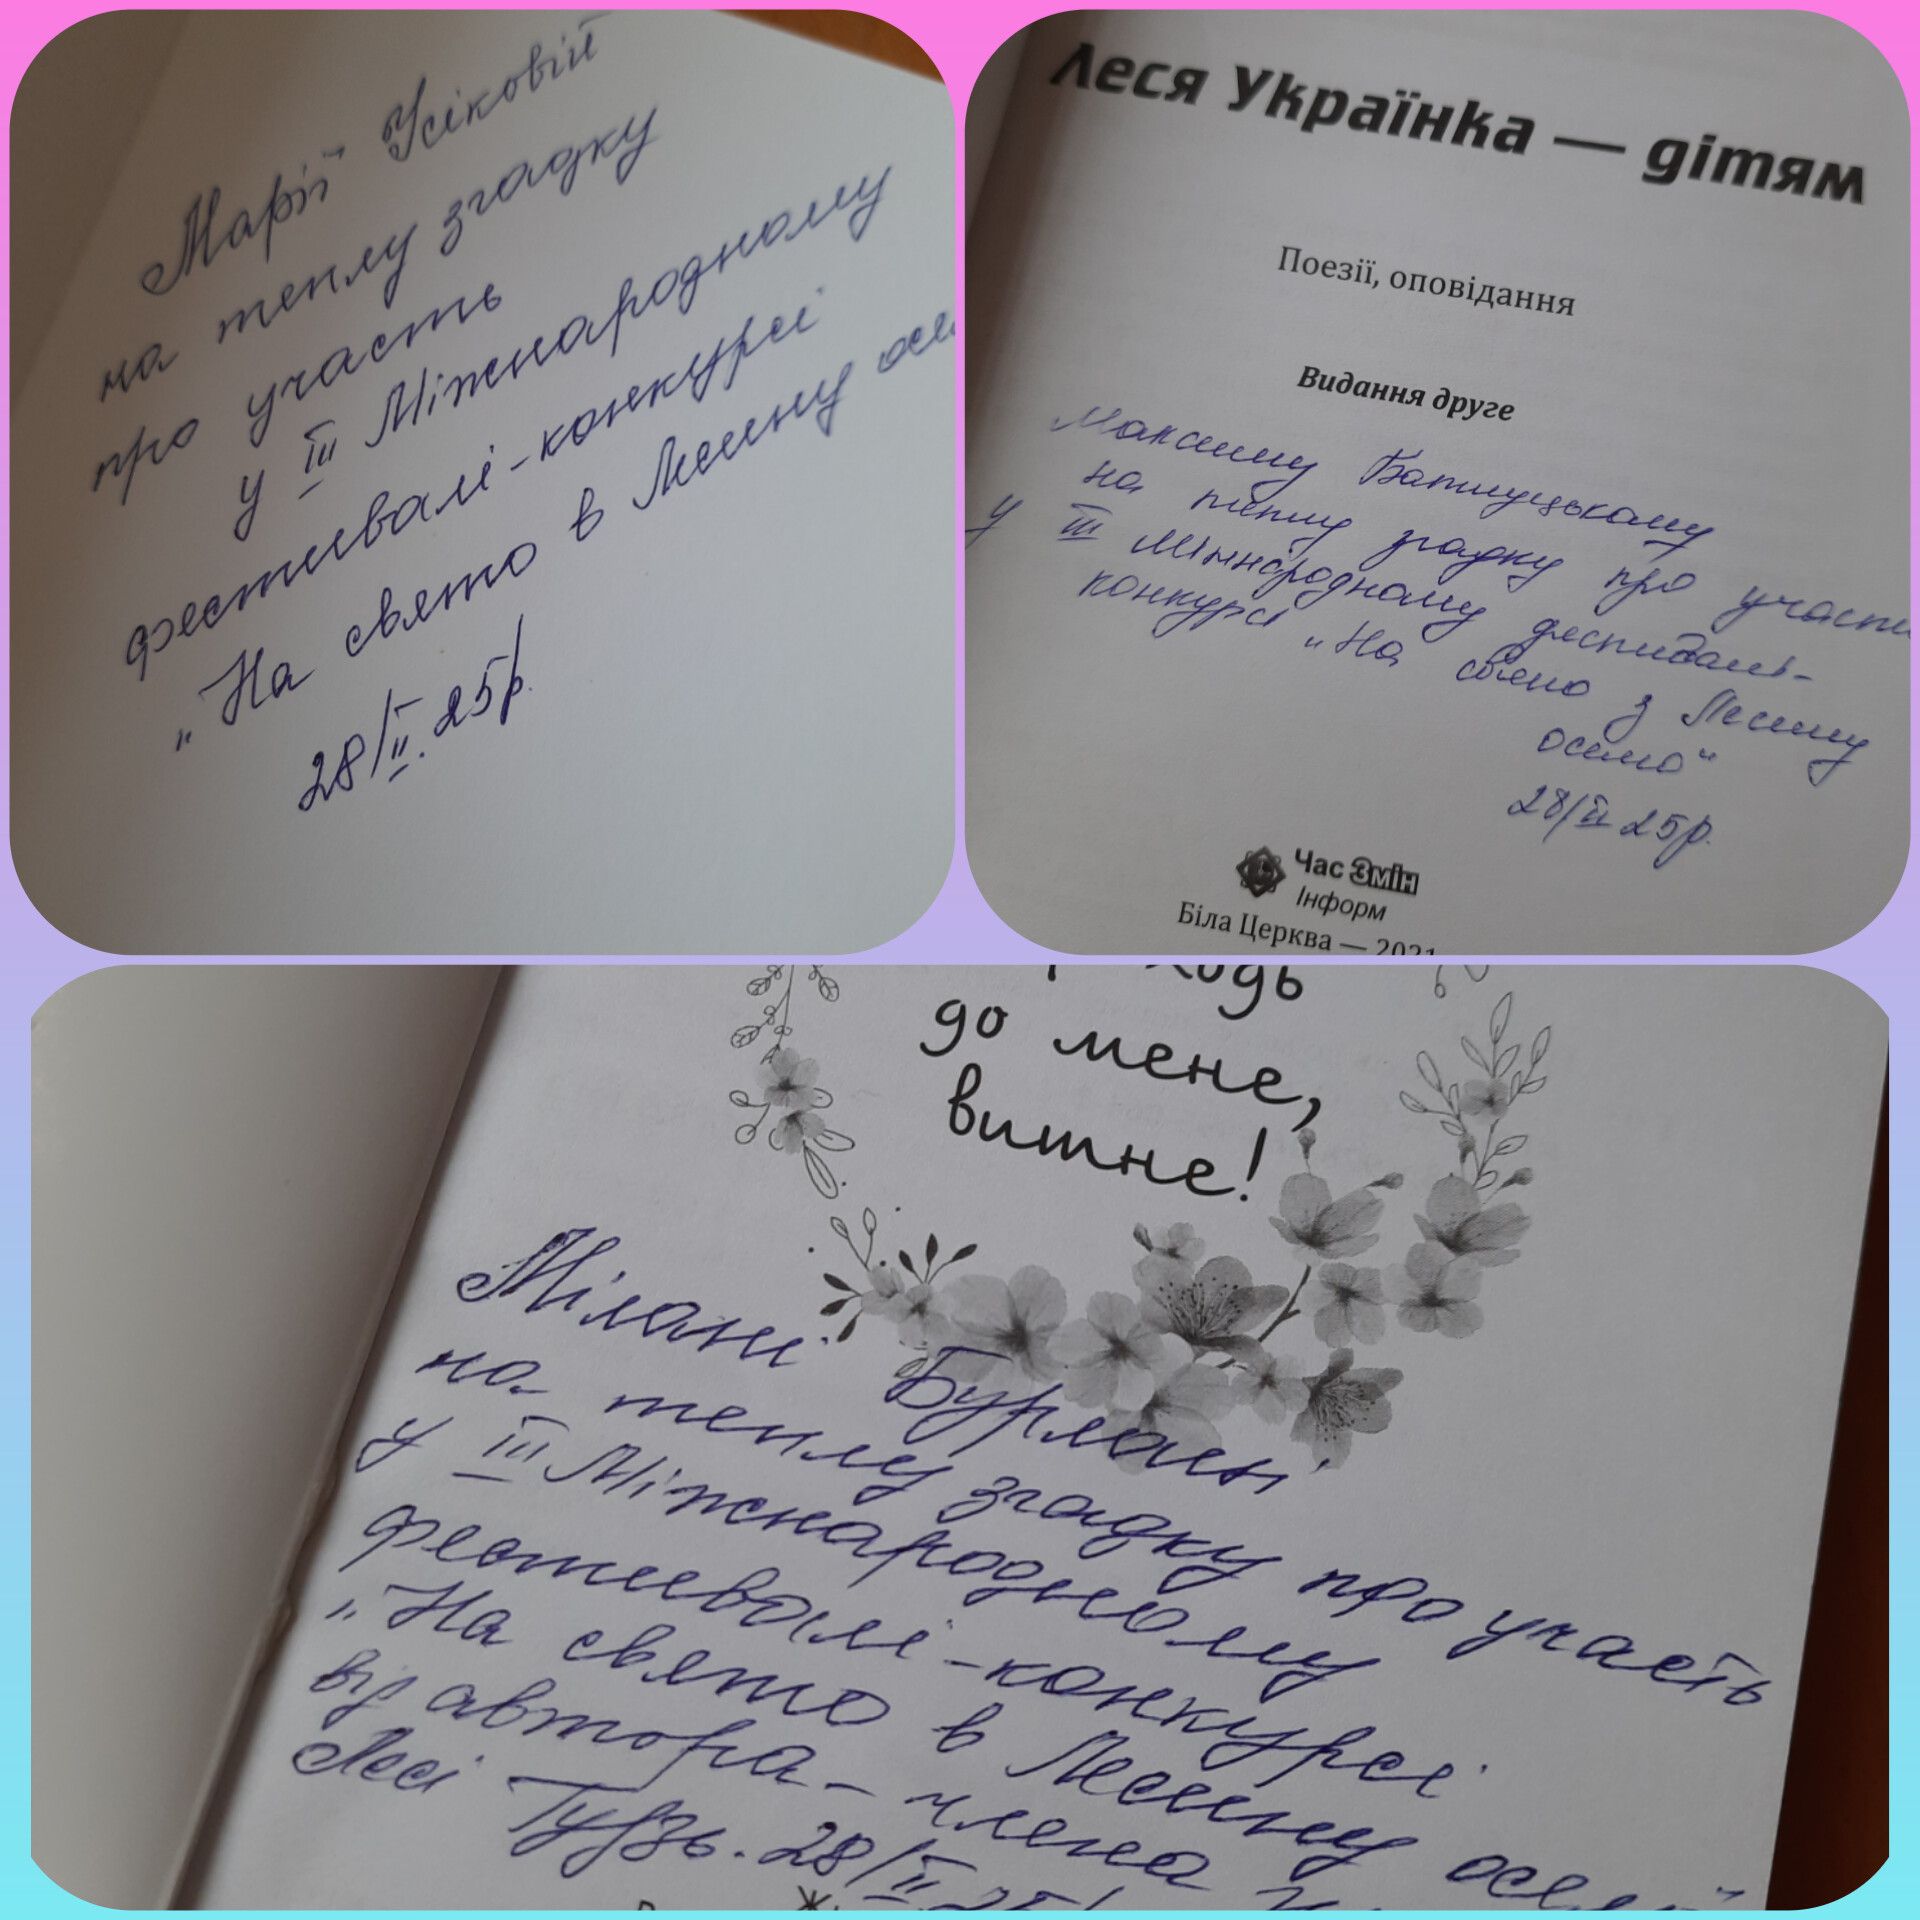 Марії Усіковій
на теплу згадку
про участь
у III Міжнародному
фестивалі-конкурсі
„На свято в Лесину осе
28/II.25р.
Леся Українка — дітям
Поезії, оповідання
Видання друге
Максиму
на теплу згадку про участь
у III Міжнародному фестивалі-
конкурсі „На свято з Лесину
оселю"
28/II 25р.
Час Змін
Інформ
Біла Церква — 2021
ходь
до мене,
вишне!
Мілані Бурлаці
на теплу згадку про участь
у III Міжнародному
фестивалі-конкурсі
„На свято в Лесину оселю"
від автора-члена
Лесі Гудзь. 28/II 25